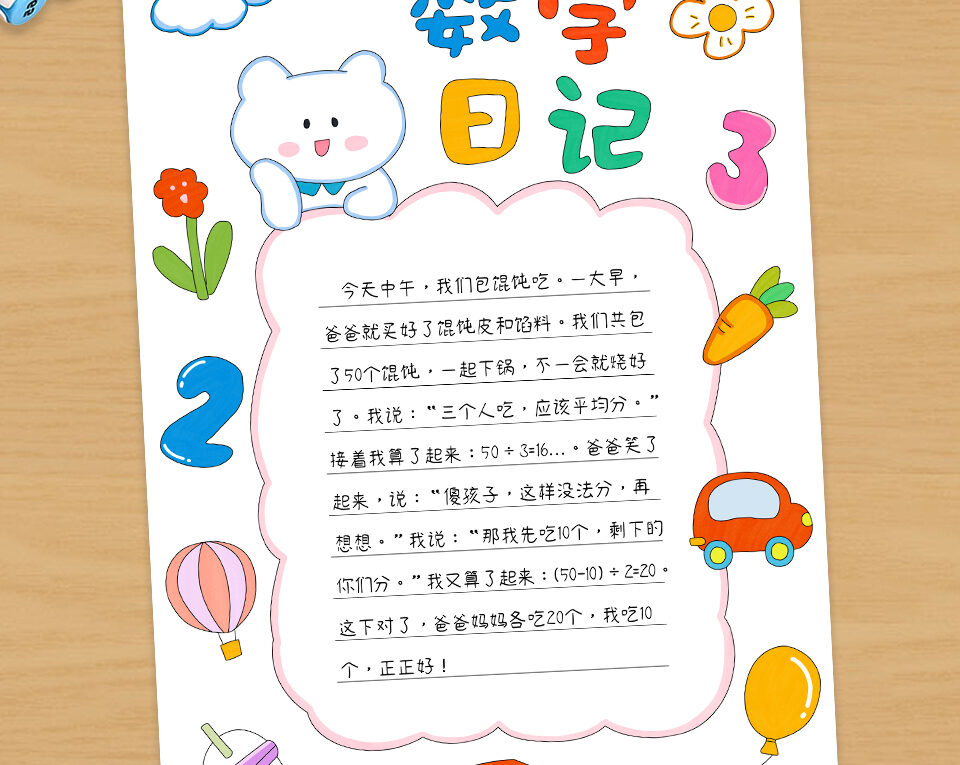 数字
日记
3
今天中午，我们包馄饨吃。一大早，
爸爸就买好了馄饨皮和馅料。我们共包
了50个馄饨，一起下锅，不一会就烧好
了。我说：“三个人吃，应该平均分。”
接着我算了起来：50÷3=16...。爸爸笑了
起来，说：“傻孩子，这样没法分，再
想想。”我说：“那我先吃10个，剩下的
你们分。”我又算了起来：(50-10)÷2=20。
这下对了，爸爸妈妈各吃20个，我吃10
个，正正好！
2